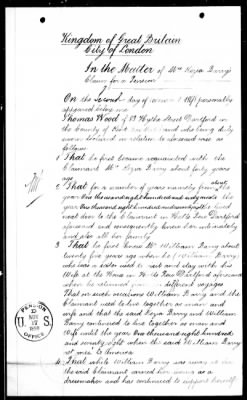 Kingdom of Great Britain
City of London
In the Matter of Mrs Keza Barry's
Claim for a Pension
On the Second day of 1898 personally
appeared before me
Thomas Wood of Hythe Street Dartford in
the County of Kent who being duly
sworn declared in relation to aforesaid case as
follows
1 That he first became acquainted with the
Claimant Mrs Keza Barry about forty years
ago
2 That for a number of years namely from about the
year One thousand eight hundred and sixty to the
year One thousand eight hundred and he lived
next door to the Claimant in Dartford
aforesaid and consequently knew her intimately
and also all her family
3 That he first knew Mr William Barry about
twenty five years ago when he the said William Barry
who was a sailor used to visit and stay with his
Wife at the House in Dartford aforesaid
when he returned from different voyages
That on such occasions William Barry and the
Claimant used to live together as man and
wife and that the said Keza Barry and William
Barry continued to live together as man and
Wife until the year One thousand eight hundred
and seventy eight when the said William Barry
went to America
4 That while William Barry was away at sea
the said Claimant earned her living as a
dressmaker and has continued to support herself
PENSION
U.S.
NOV
1898
OFFICE